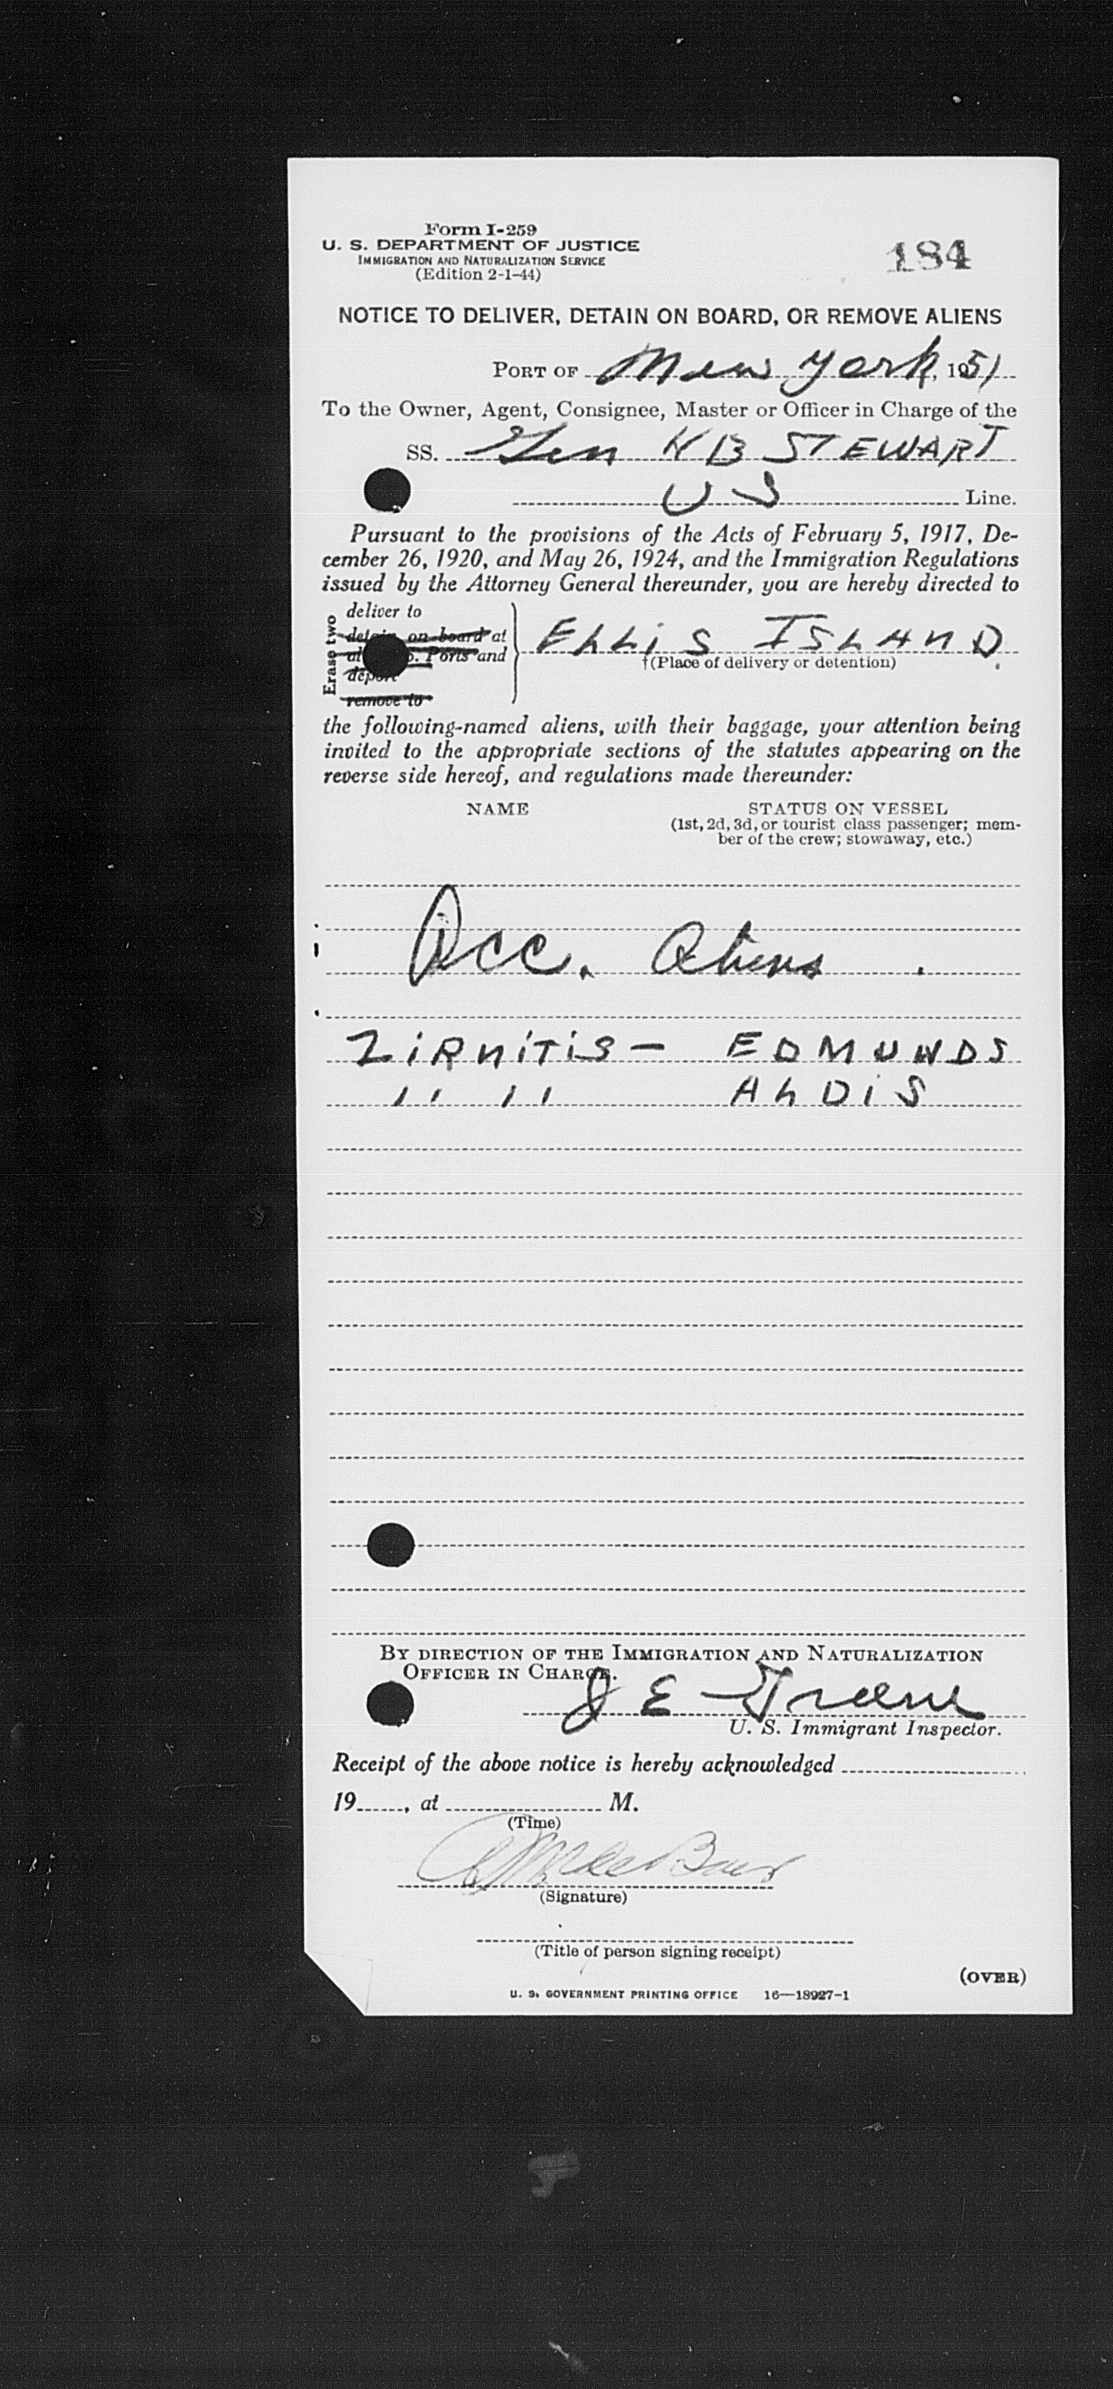 Form I-259
U. S. DEPARTMENT OF JUSTICE
IMMIGRATION AND NATURALIZATION SERVICE
(Edition 2-1-44)
184
NOTICE TO DELIVER, DETAIN ON BOARD, OR REMOVE ALIENS
PORT OF New York, 1951
To the Owner, Agent, Consignee, Master or Officer in Charge of the
SS. Gen H B STEWART
US Line.
Pursuant to the provisions of the Acts of February 5, 1917, De-
cember 26, 1920, and May 26, 1924, and the Immigration Regulations
issued by the Attorney General thereunder, you are hereby directed to
Erase two
deliver to
detain on board at
Ports and
deport
remove to
ELLIS ISLAND
†(Place of delivery or detention)
the following-named aliens, with their baggage, your attention being
invited to the appropriate sections of the statutes appearing on the
reverse side hereof, and regulations made thereunder:
NAME STATUS ON VESSEL
(1st, 2d, 3d, or tourist class passenger; mem-
ber of the crew; stowaway, etc.)
Acc. Aliens
ZIRNITIS - EDMUNDS
" " ALDIS
BY DIRECTION OF THE IMMIGRATION AND NATURALIZATION
OFFICER IN CHARGE.
J E Greene
U. S. Immigrant Inspector.
Receipt of the above notice is hereby acknowledged
19, at M.
(Time)
(Signature)
(Title of person signing receipt)
(OVER)
U. S. GOVERNMENT PRINTING OFFICE 16—18927-1